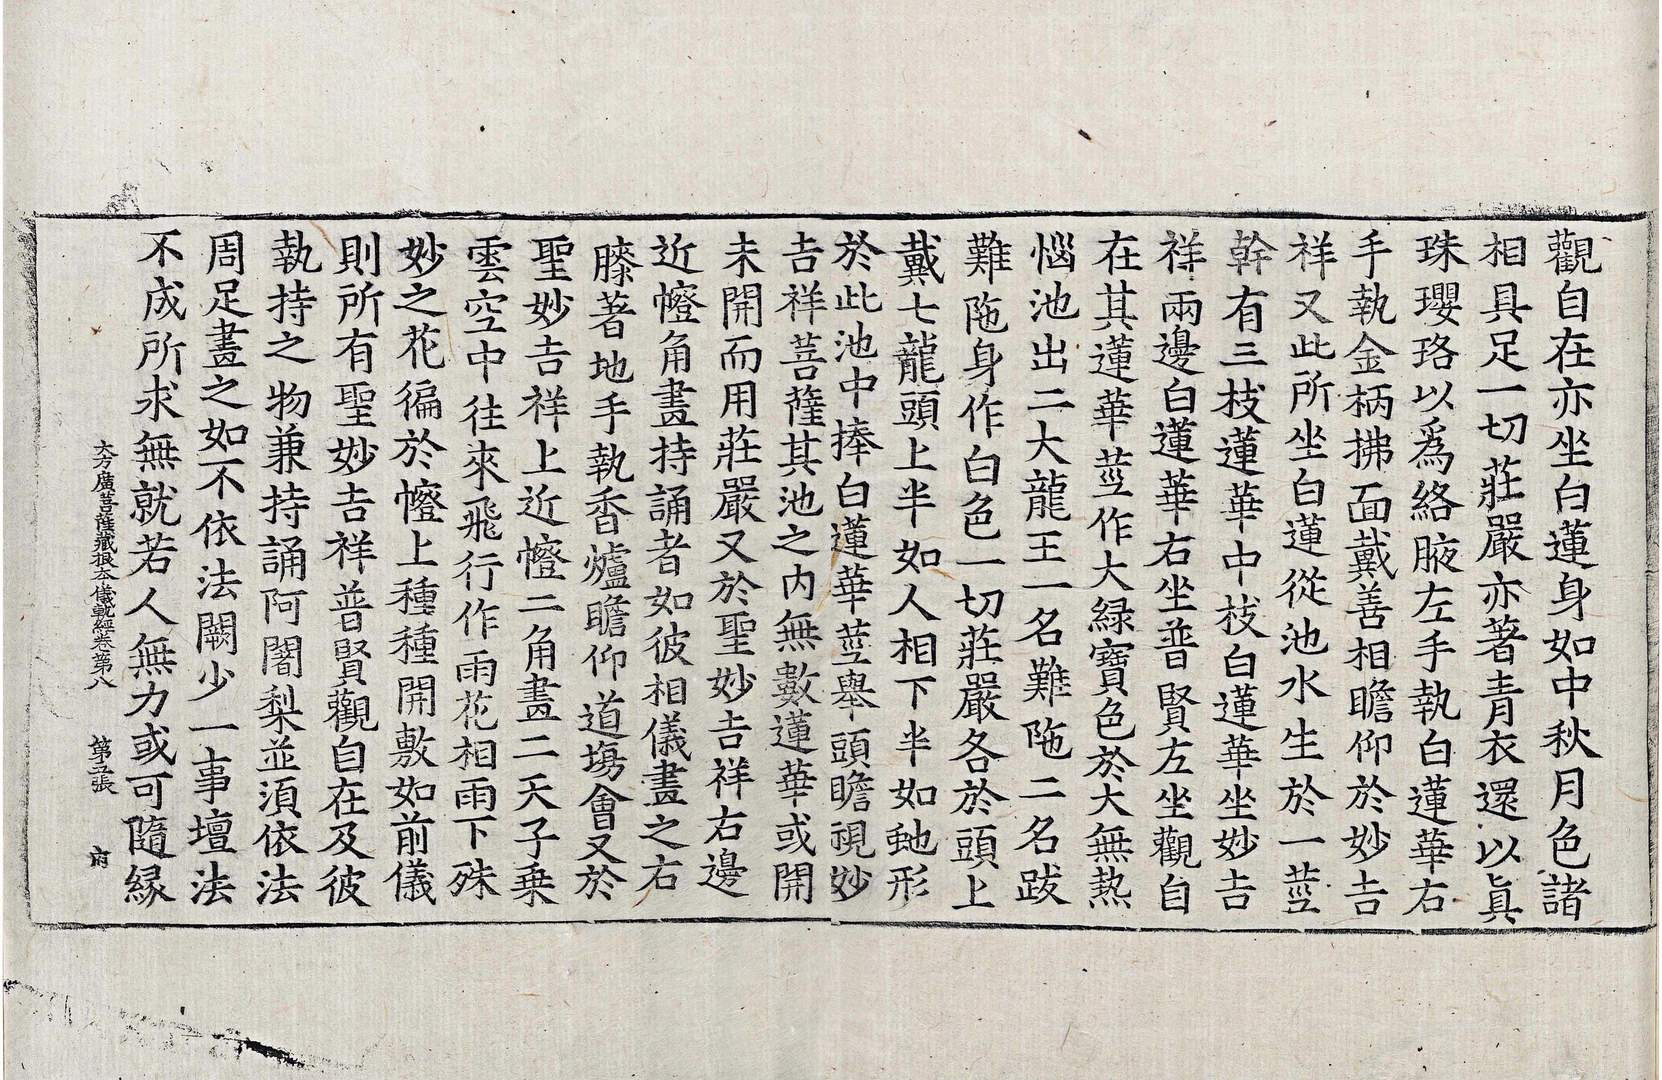 觀自在亦坐白蓮身如中秋月色諸
相具足一切莊嚴亦著青衣還以真
珠瓔珞以爲絡腋左手執白蓮華右
手執金柄拂面戴善相瞻仰於妙吉
祥又此所坐白蓮從池水生於一莖
幹有三枝蓮華中枝白蓮華坐妙吉
祥兩邊白蓮華右坐普賢左坐觀自
在其蓮華莖作大緑寶色於大無熱
惱池出二大龍王一名難陁二名跋
難陁身作白色一切莊嚴各於頭上
戴七龍頭上半如人相下半如虵形
於此池中捧白蓮華莖舉頭瞻視妙
吉祥菩薩其池之內無數蓮華或開
未開而用莊嚴又於聖妙吉祥右邊
近㡧角畫持誦者如彼相儀畫之右
膝著地手執香爐瞻仰道塲會又於
聖妙吉祥上近㡧二角畫二天子乗
雲空中往來飛行作雨花相雨下殊
妙之花徧於㡧上種種開敷如前儀
則所有聖妙吉祥普賢觀自在及彼
執持之物兼持誦阿闍梨並湏依法
周足畫之如不依法闕少一事壇法
不成所求無就若人無力或可隨緣
大方廣菩薩藏根本儀軌經卷第八 第五張 府